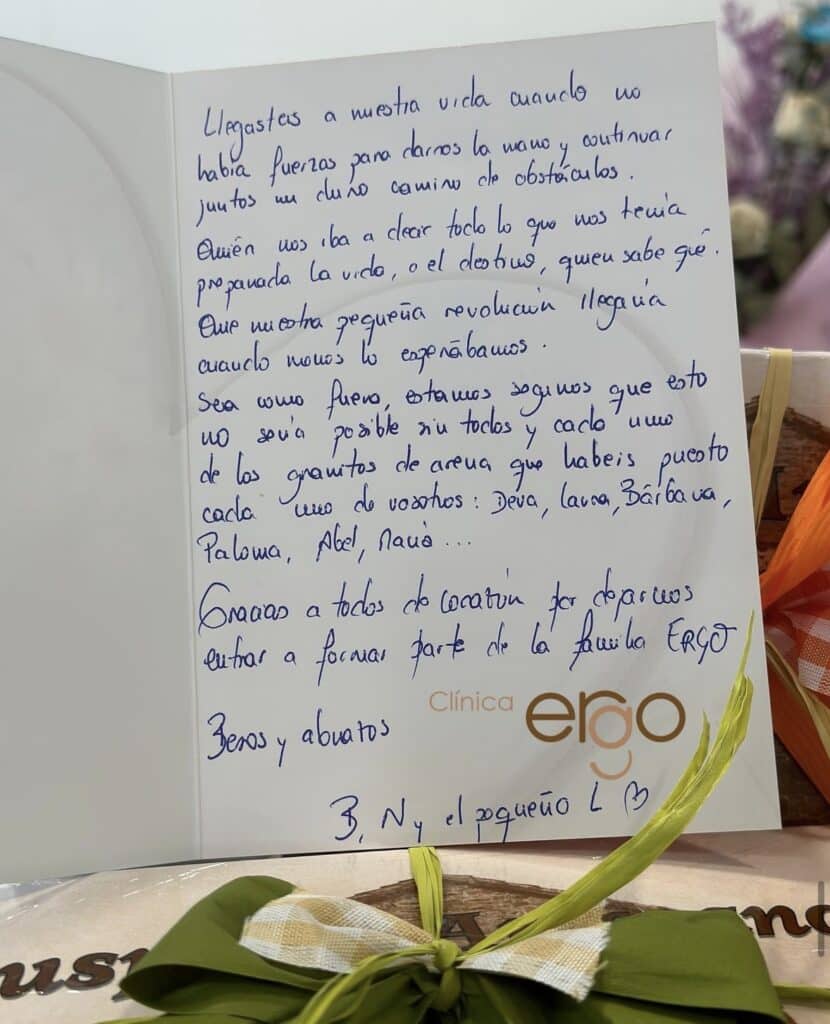 Llegasteis a nuestra vida cuando no
había fuerzas para darnos la mano y continuar
juntos un duro camino de obstáculos.
Quién nos iba a decir todo lo que nos tenía
preparada la vida, o el destino, quien sabe qué.
Que nuestra pequeña revolución llegaría
cuando menos lo esperábamos.
Sea como fuere, estamos seguros que esto
no sería posible sin todos y cada uno
de los granitos de arena que habeis puesto
cada uno de vosotros: Deva, Laura, Bárbara,
Paloma, Abel, María...
Gracias a todos de corazón por dejarnos
entrar a formar parte de la familia ERGO
Clínica ergo
Besos y abrazos
B, N y el pequeño L